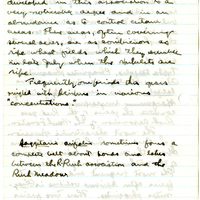 developed in this association to a
very noticeable degree and in an
abundance as to control certain
areas. These areas, often covering
several acres, are as conspicuous as
ripe wheat fields which they resemble
in late July when the spikelets are
ripe.
Frequently one finds the grass
mingled with in various
"concentrations".
airoides sometimes forms a
complete belt about ponds and lakes
between the P. Rush association and the
Rush Meadow.